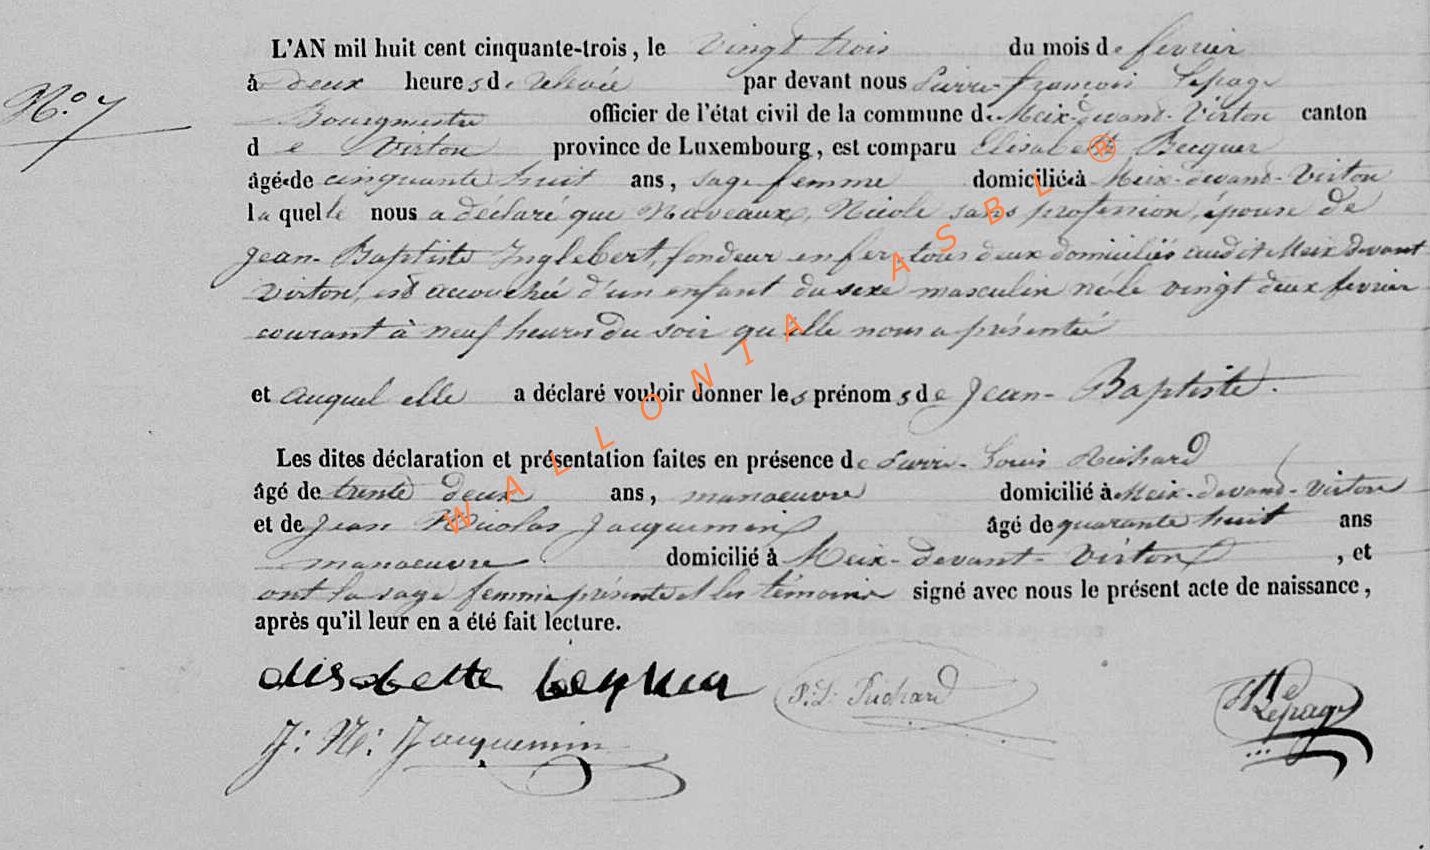 L'AN mil huit cent cinquante-trois, le vingt trois du mois de fevrier
N.° 7
à deux heures de relevée par devant nous Pierre-François Lepage
Bourgmestre officier de l'état civil de la commune de Meix-devant-Virton canton
de Virton province de Luxembourg, est comparu Elisabeth Becquer
âgée de cinquante huit ans, sage femme domiciliée à Meix-devant-Virton
laquelle nous a déclaré que Naveaux, Nicole sans profession, épouse de
Jean-Baptiste Inglebert, fondeur en fer, tous deux domiciliés audit Meix devant
Virton, est accouchée d'un enfant du sexe masculin né le vingt deux fevrier
courant à neuf heures du soir qu'elle nous a présenté
et auquel elle a déclaré vouloir donner les prénoms de Jean-Baptiste.
Les dites déclaration et présentation faites en présence de Pierre-Louis Richard
âgé de trente deux ans, manoeuvre domicilié à Meix-devant-Virton
et de Jean Nicolas Jacquemin âgé de quarante huit ans
manoeuvre domicilié à Meix-devant-Virton, et
ont la sage femme présente et les témoins signé avec nous le présent acte de naissance,
après qu'il leur en a été fait lecture.
elisabette
P. L. Richard
Lepage
J: N: Jacquemin
WALLONIA ASBL ®